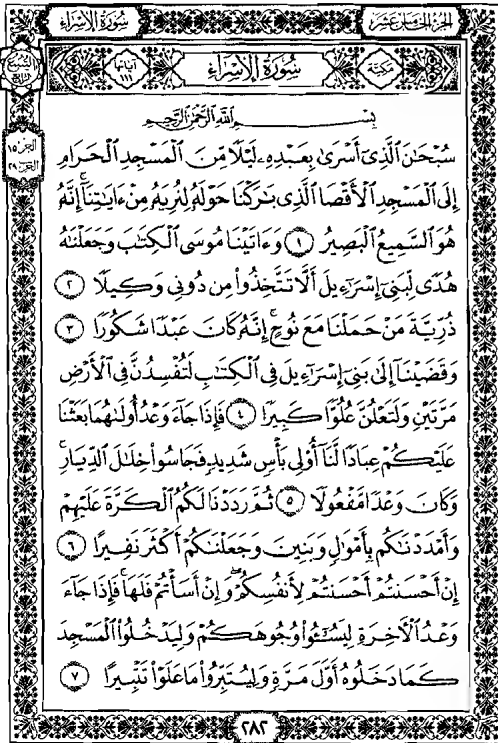 سُورَةُ الإِسْرَاءِ
الجزء الخامس عشر
مكيّة
سُورَةُ الإِسْرَاءِ
آياتها ١١١
بِسْمِ ٱللَّهِ ٱلرَّحْمَٰنِ ٱلرَّحِيمِ
سُبْحَٰنَ ٱلَّذِىٓ أَسْرَىٰ بِعَبْدِهِۦ لَيْلًا مِّنَ ٱلْمَسْجِدِ ٱلْحَرَامِ
إِلَى ٱلْمَسْجِدِ ٱلْأَقْصَا ٱلَّذِى بَٰرَكْنَا حَوْلَهُۥ لِنُرِيَهُۥ مِنْ ءَايَٰتِنَآ ۚ إِنَّهُۥ
هُوَ ٱلسَّمِيعُ ٱلْبَصِيرُ ١ وَءَاتَيْنَا مُوسَى ٱلْكِتَٰبَ وَجَعَلْنَٰهُ
هُدًى لِّبَنِىٓ إِسْرَٰٓءِيلَ أَلَّا تَتَّخِذُوا۟ مِن دُونِى وَكِيلًا ٢
ذُرِّيَّةَ مَنْ حَمَلْنَا مَعَ نُوحٍ ۚ إِنَّهُۥ كَانَ عَبْدًا شَكُورًا ٣
وَقَضَيْنَآ إِلَىٰ بَنِىٓ إِسْرَٰٓءِيلَ فِى ٱلْكِتَٰبِ لَتُفْسِدُنَّ فِى ٱلْأَرْضِ
مَرَّتَيْنِ وَلَتَعْلُنَّ عُلُوًّا كَبِيرًا ٤ فَإِذَا جَآءَ وَعْدُ أُولَىٰهُمَا بَعَثْنَا
عَلَيْكُمْ عِبَادًا لَّنَآ أُو۟لِى بَأْسٍ شَدِيدٍ فَجَاسُوا۟ خِلَٰلَ ٱلدِّيَارِ ۚ
وَكَانَ وَعْدًا مَّفْعُولًا ٥ ثُمَّ رَدَدْنَا لَكُمُ ٱلْكَرَّةَ عَلَيْهِمْ
وَأَمْدَدْنَٰكُم بِأَمْوَٰلٍ وَبَنِينَ وَجَعَلْنَٰكُمْ أَكْثَرَ نَفِيرًا ٦
إِنْ أَحْسَنتُمْ أَحْسَنتُمْ لِأَنفُسِكُمْ ۖ وَإِنْ أَسَأْتُمْ فَلَهَا ۚ فَإِذَا جَآءَ
وَعْدُ ٱلْءَاخِرَةِ لِيَسُۥٓـُٔوا۟ وُجُوهَكُمْ وَلِيَدْخُلُوا۟ ٱلْمَسْجِدَ
كَمَا دَخَلُوهُ أَوَّلَ مَرَّةٍ وَلِيُتَبِّرُوا۟ مَا عَلَوْا۟ تَتْبِيرًا ٧
٢٨٢